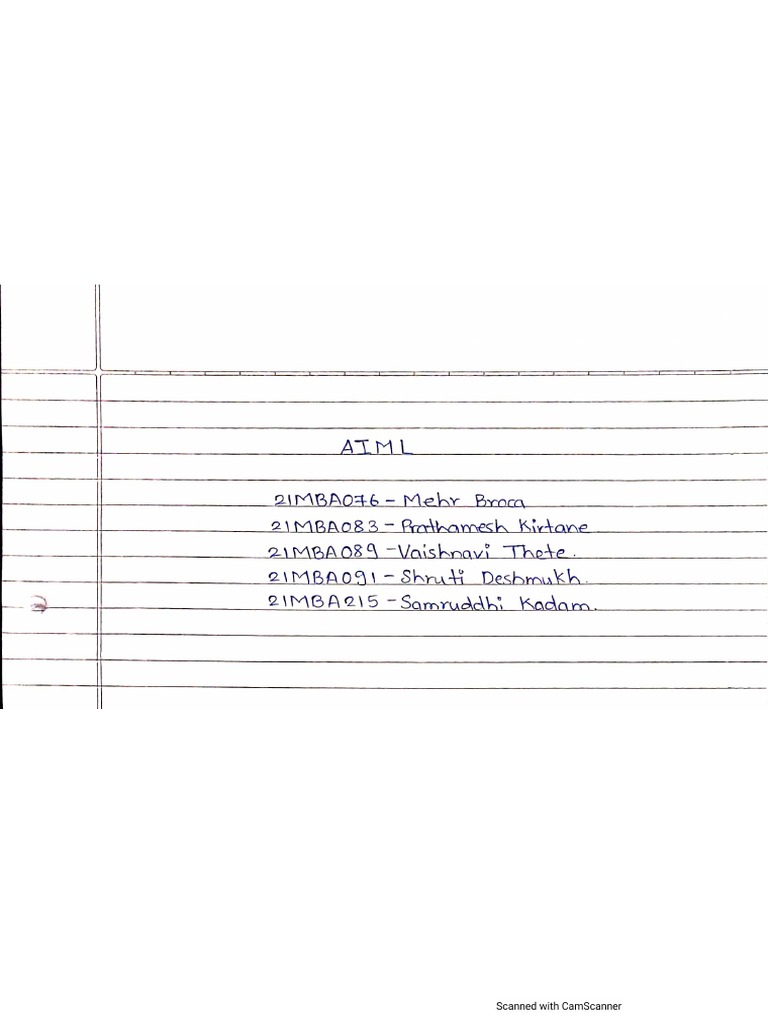 AIML
21MBA076 - Mehr Broca
21MBA083 - Prathamesh Kirtane
21MBA089 - Vaishnavi Thote.
21MBA091 - Shruti Deshmukh.
21MBA215 - Samruddhi Kadam.
Scanned with CamScanner